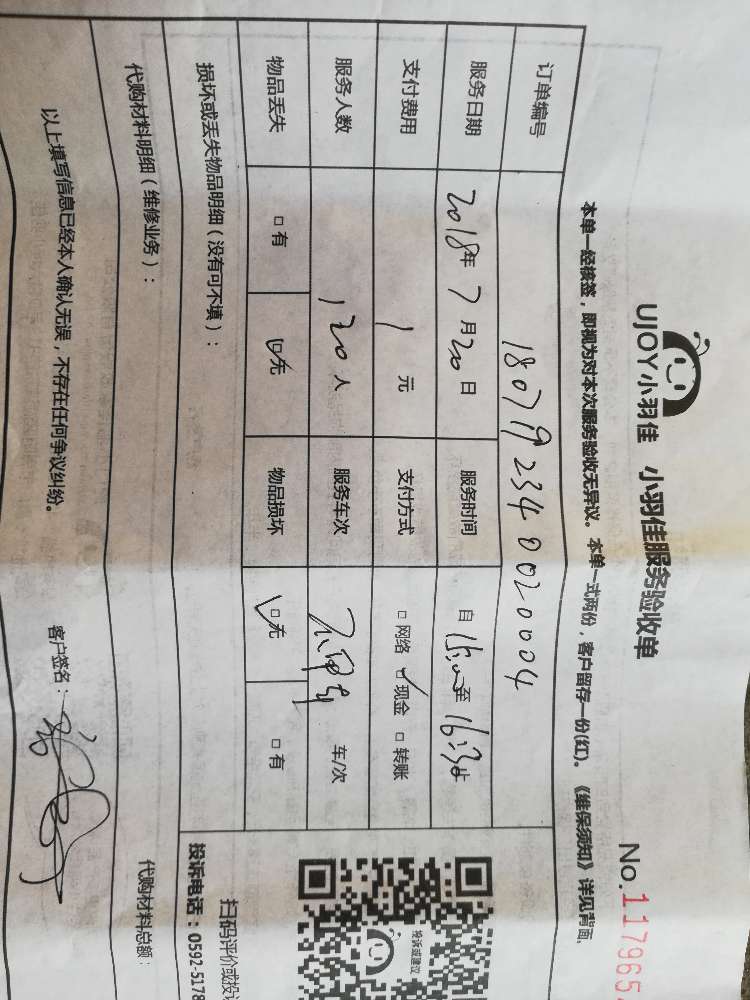 UJOY小羽佳 小羽佳服务验收单
No.117965
本单一经核签，即视为对本次服务验收无异议。本单一式两份，客户留存一份(红)。《维保须知》详见背面。
订单编号 180719234 0020004
服务日期 2018年7月20日 服务时间 自15:00至16:30
支付费用 1元 支付方式 □网络 ☑现金 □转账
服务人数 120人 服务车次 车/次
物品丢失 □有 ☑无 物品损坏 ☑无 □有
损坏或丢失物品明细（没有可不填）：
代购材料明细（维修业务）： 代购材料总额：
以上填写信息已经本人确认无误，不存在任何争议纠纷。
客户签名：
投诉或建议
扫码评价或投
投诉电话：0592-5178